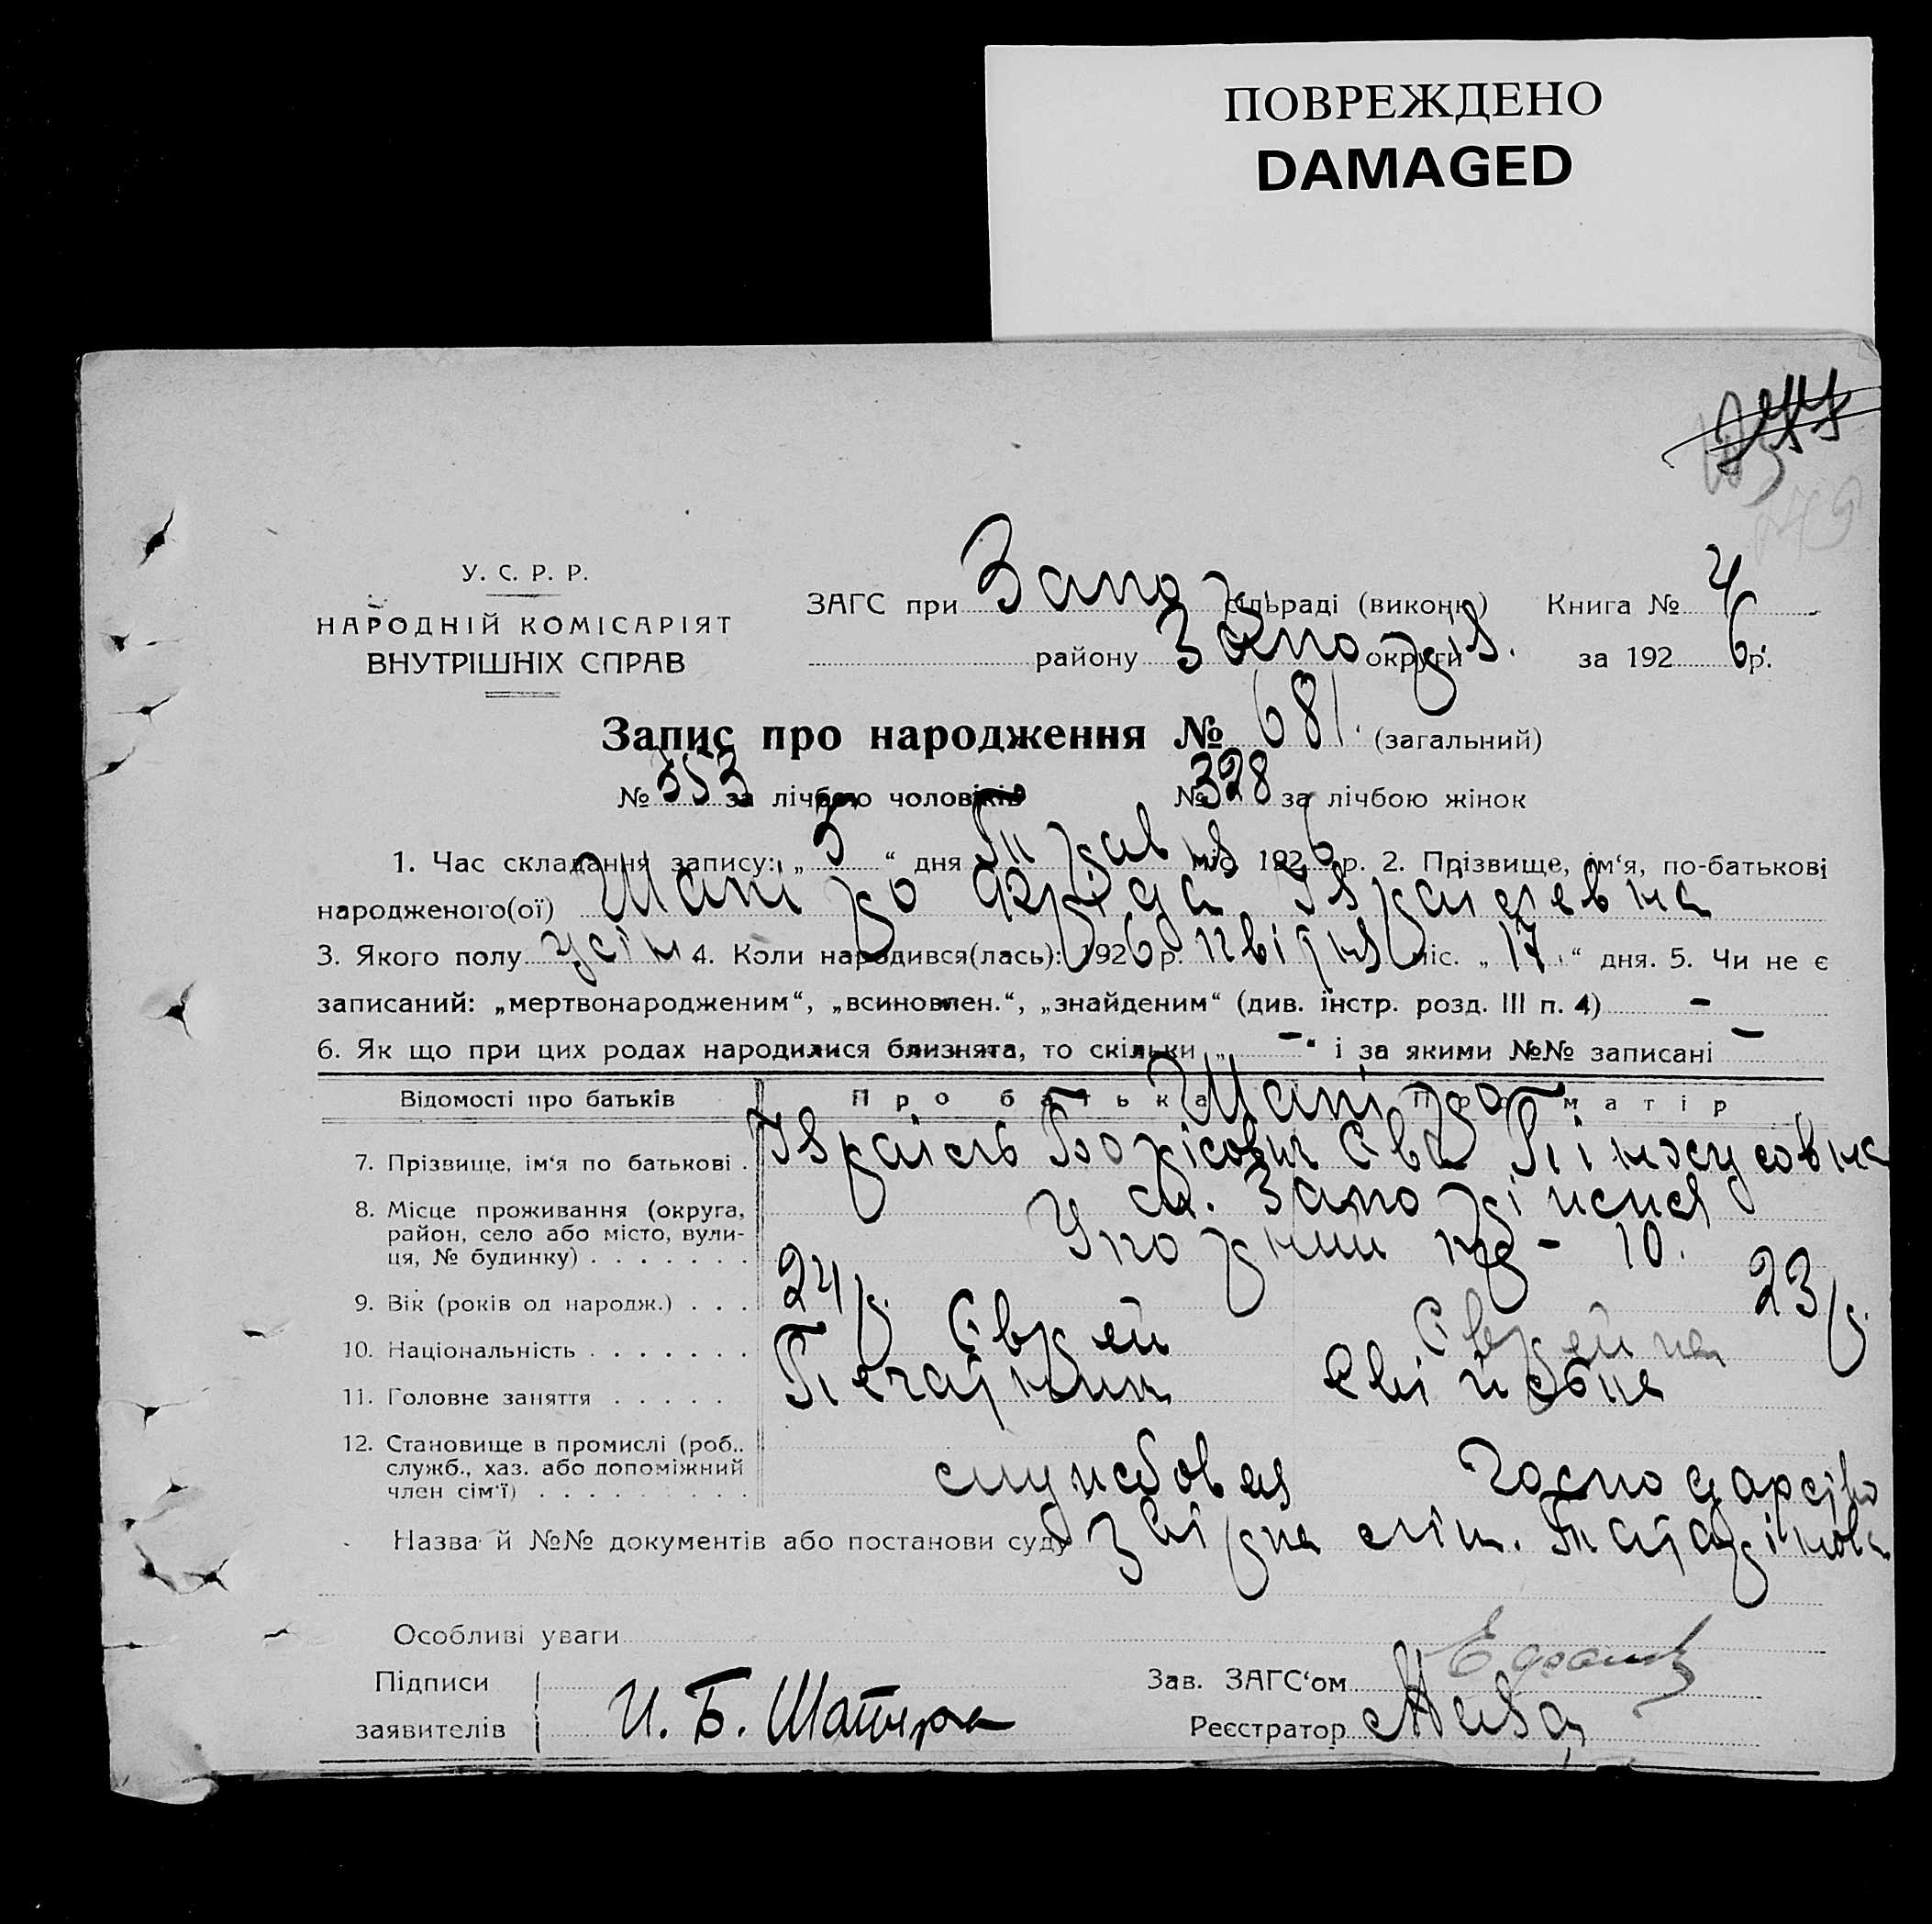 ПОВРЕЖДЕНО
DAMAGED
У. С. Р. Р.
НАРОДНІЙ КОМІСАРІЯТ
ВНУТРІШНІХ СПРАВ
ЗАГС при Запор сільраді (виконк) Книга № 4
району Запоріз. округи за 1926 р.
Запис про народження № 681. (загальний)
№ 353 за лічбою чоловіків № 328 за лічбою жінок
1. Час складання запису: „ 5 “ дня Травня міс 1926 р. 2. Прізвище, ім‘я, по-батькові
народженого(ої) Шапіро Ізраілевна
3. Якого полу 4. Коли народився(лась): 1926 р. квітня міс. „ 17 “ дня. 5. Чи не є
записаний: „мертвонародженим“, „всиновлен.“, „знайденим“ (див. інстр. розд. III п. 4) -
6. Як що при цих родах народилися близнята, то скільки „ - “ і за якими №№ записані -
Відомості про батьків Про батька Про матір
Шапіро
7. Прізвище, ім‘я по батькові . Ізраіль Борісович Єва Пінхусовна
8. Місце проживання (округа, район, село або місто, вулиця, № будинку) . . . . . . . Запоріжжя
10.
9. Вік (років од народж.) . . . 24 р. 23 р.
10. Національність . . . . . . . Єврей Єврейка
11. Головне заняття . . . . . Печатник
12. Становище в промислі (роб.. служб., хаз. або допоміжний член сім‘ї) . . . . . . . . . службовая господарство
Назва й №№ документів або постанови суду
Особливі уваги
Підписи заявителів И. Б. Шапиро
Зав. ЗАГС‘ом
Реєстратор